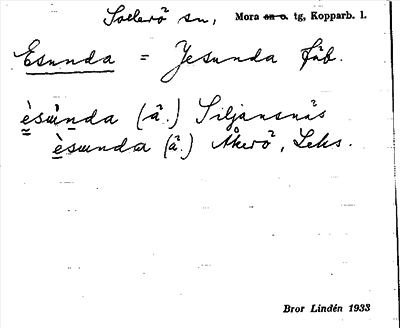 Sollerö sn, Mora sn o. tg, Kopparb. l.
Esunda = Jesunda fäb.
èsùnda (å.) Siljansnäs
èsunda (å.) Åkerö, Leks.
Bror Lindén 1933